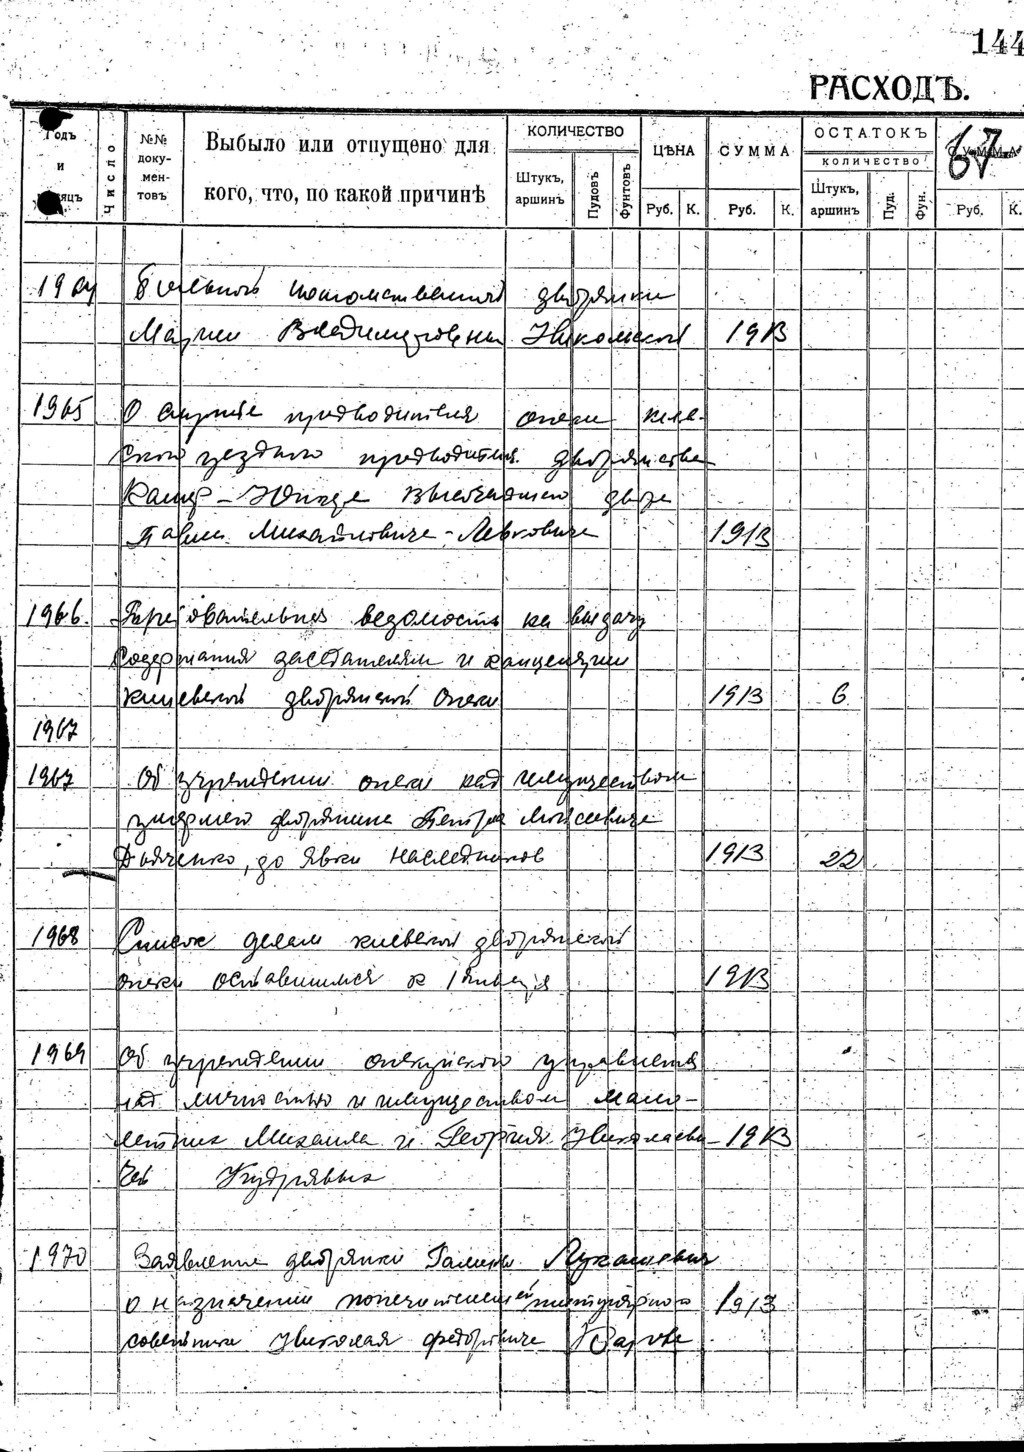 144
РАСХОДЪ.
67
Годъ и мѣсяцъ
Число
№№ доку-мен-товъ
Выбыло или отпущено для кого, что, по какой причинѣ
КОЛИЧЕСТВО
Штукъ, аршинъ
Пудовъ
Фунтовъ
ЦѢНА
Руб. К.
СУММА
Руб. К.
ОСТАТОКЪ
КОЛИЧЕСТВО
Штукъ, аршинъ
Пуд.
Фун.
СУММА
Руб. К.
1964 потомственной дворянки
Марии Владимировны Никольской 1913
1965 О службе предводителя опеки киев-
ского уездного предводителя дворянства
двора
Павла Михайловича-Левковича 1913
1966. Требовательная ведомость на выдачу
содержания заседателям и канцелярии
киевской дворянской опеки 1913 6
1967
1967 Об учреждении опеки над имуществом
умершего дворянина Петра Моисеевича
Дьяченко, до явки наследников 1913 22
1968 Список делам киевской дворянской
опеки оставшимся к 1 января 1913
1969 Об учреждении опекунского управления
над личностью и имуществом мало-
летних Михаила и Георгия Николаеви- 1913
чей Кудрявых
1970 Заявление дворянки Галины Лукашевич
о назначении попечителем титулярного 1913
советника Николая Федоровича